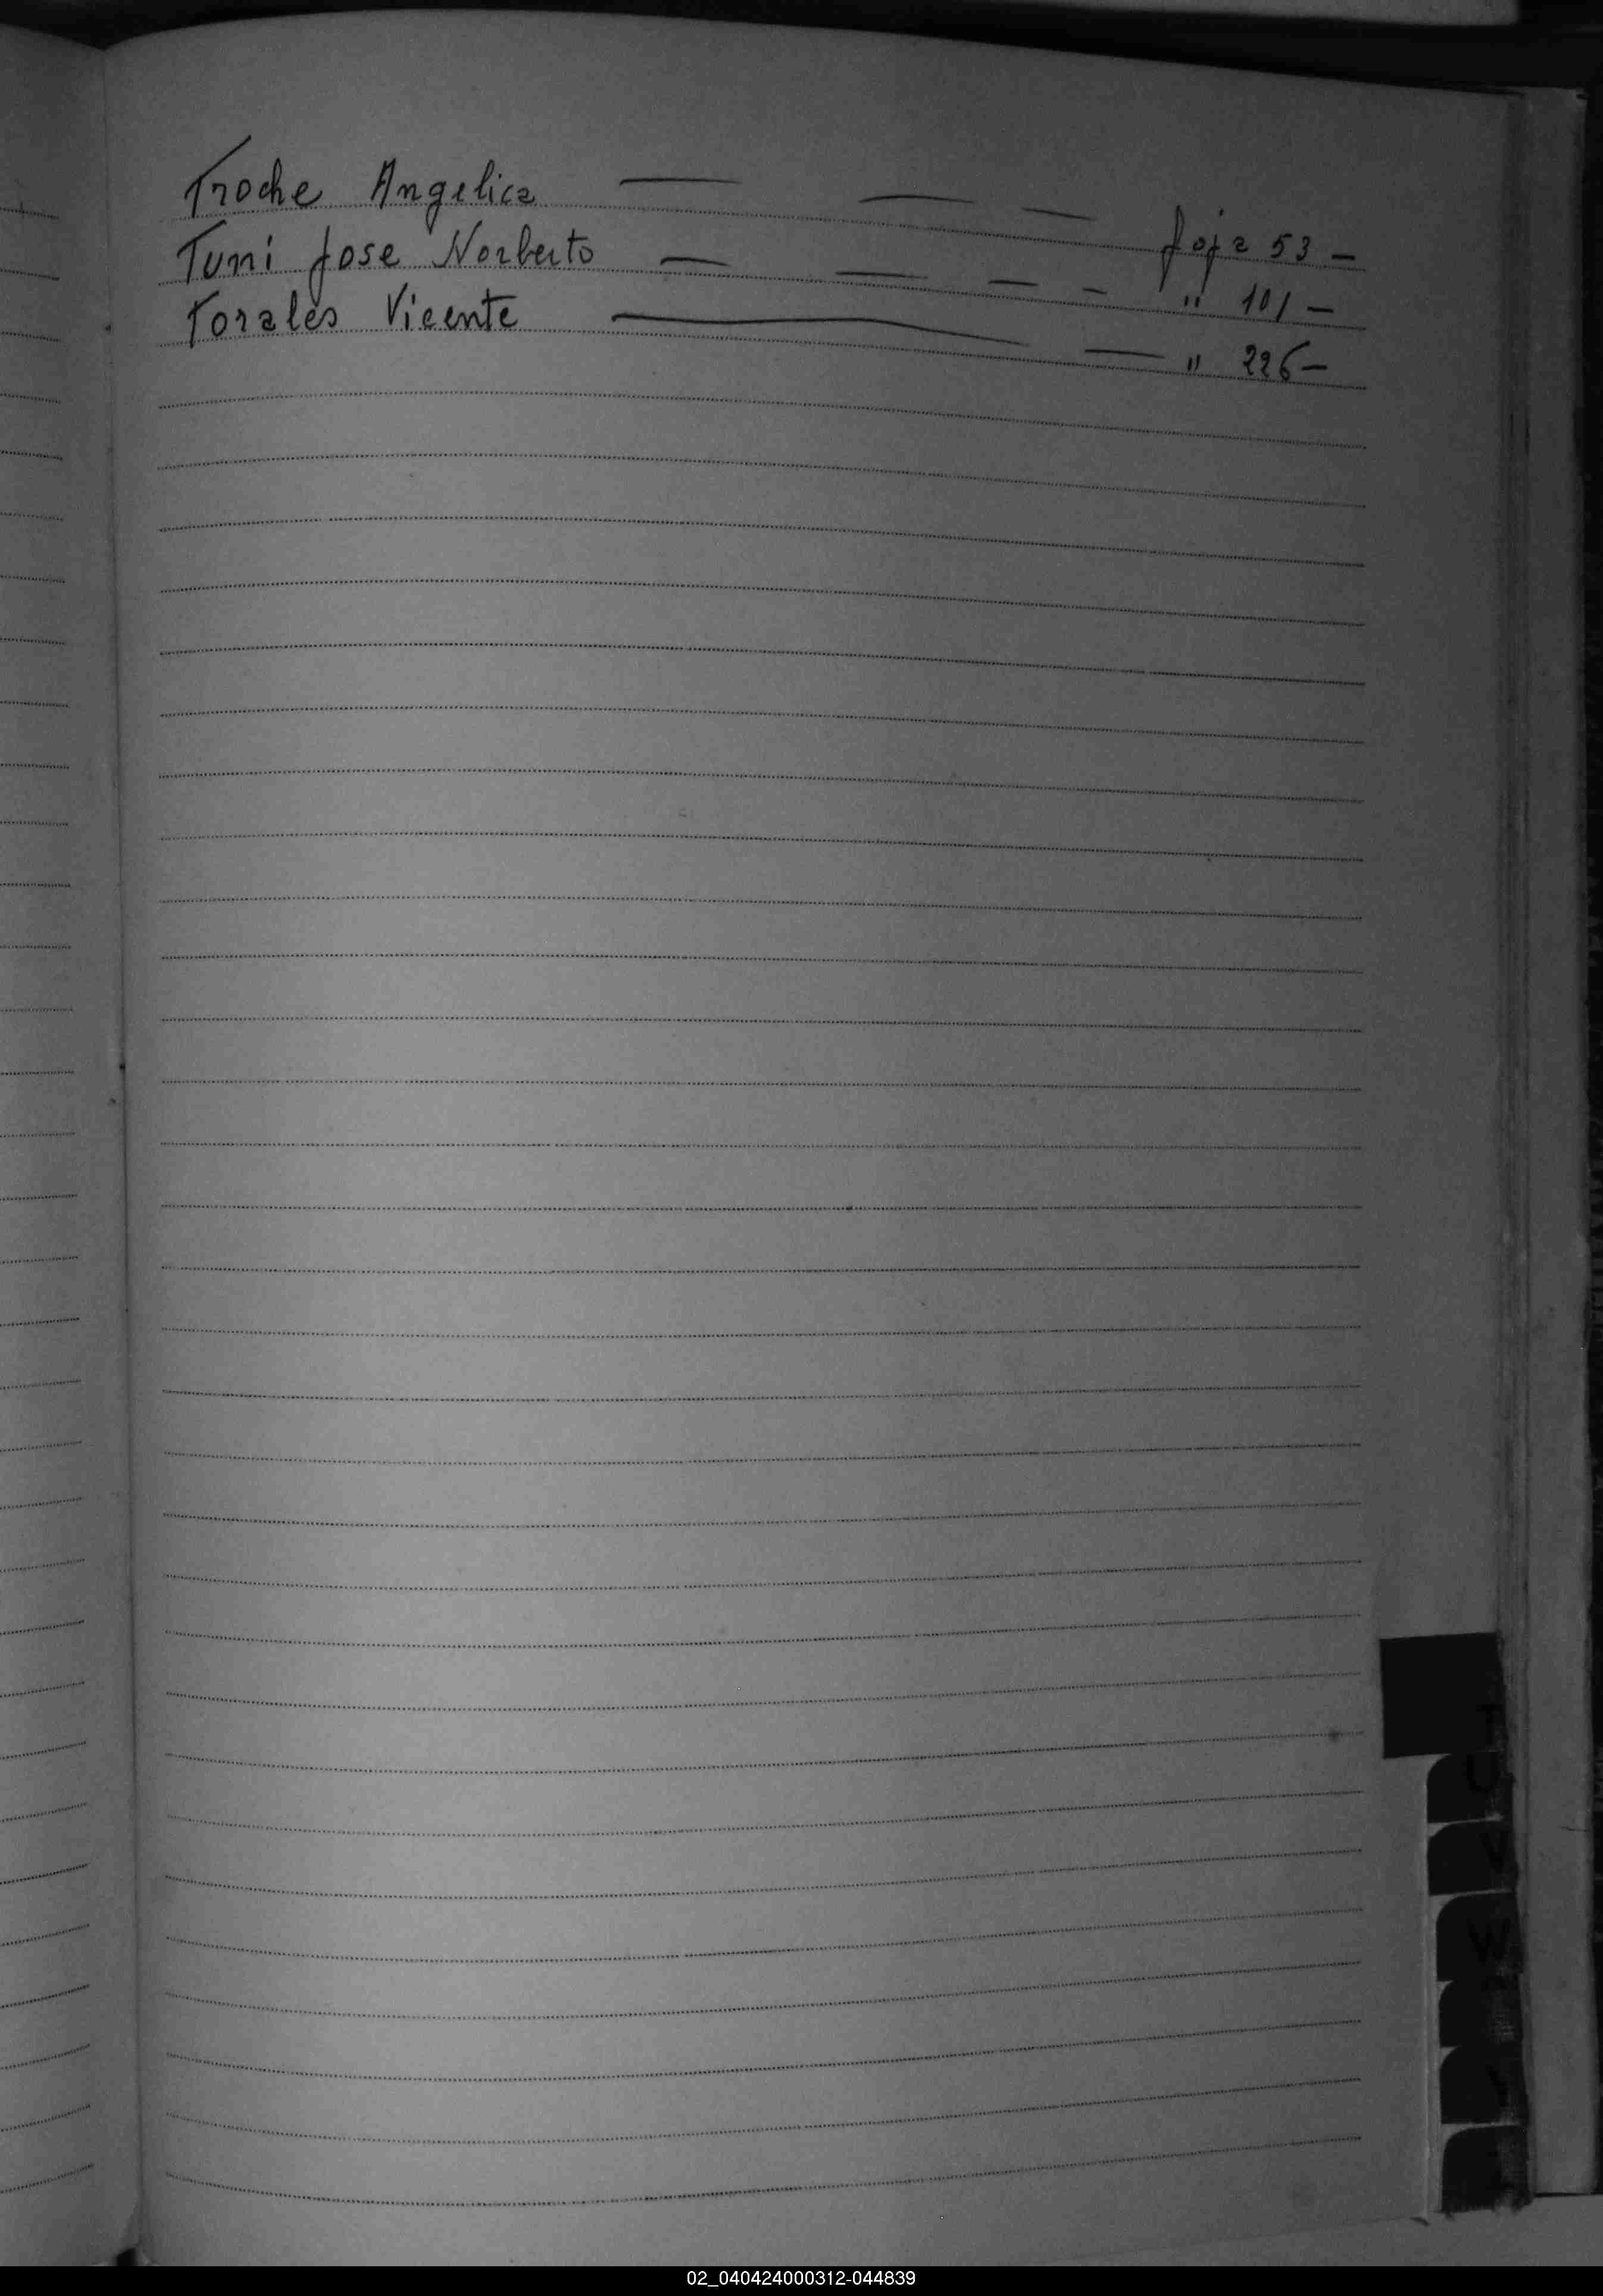 Troche Angelica — — — foja 53 —
Tuni Jose Norberto — — — - " 101 —
Torales Vicente — — " 226 —
T
U
V
W
02_040424000312-044839